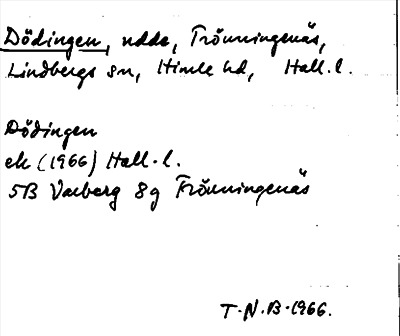 Dödingen, udde, Trönningenäs,
Lindbergs sn, Himle hd, Hall. l.
Dödingen
ek (1966) Hall. l.
5B Varberg 8g Trönningenäs
T.N.B. 1966.